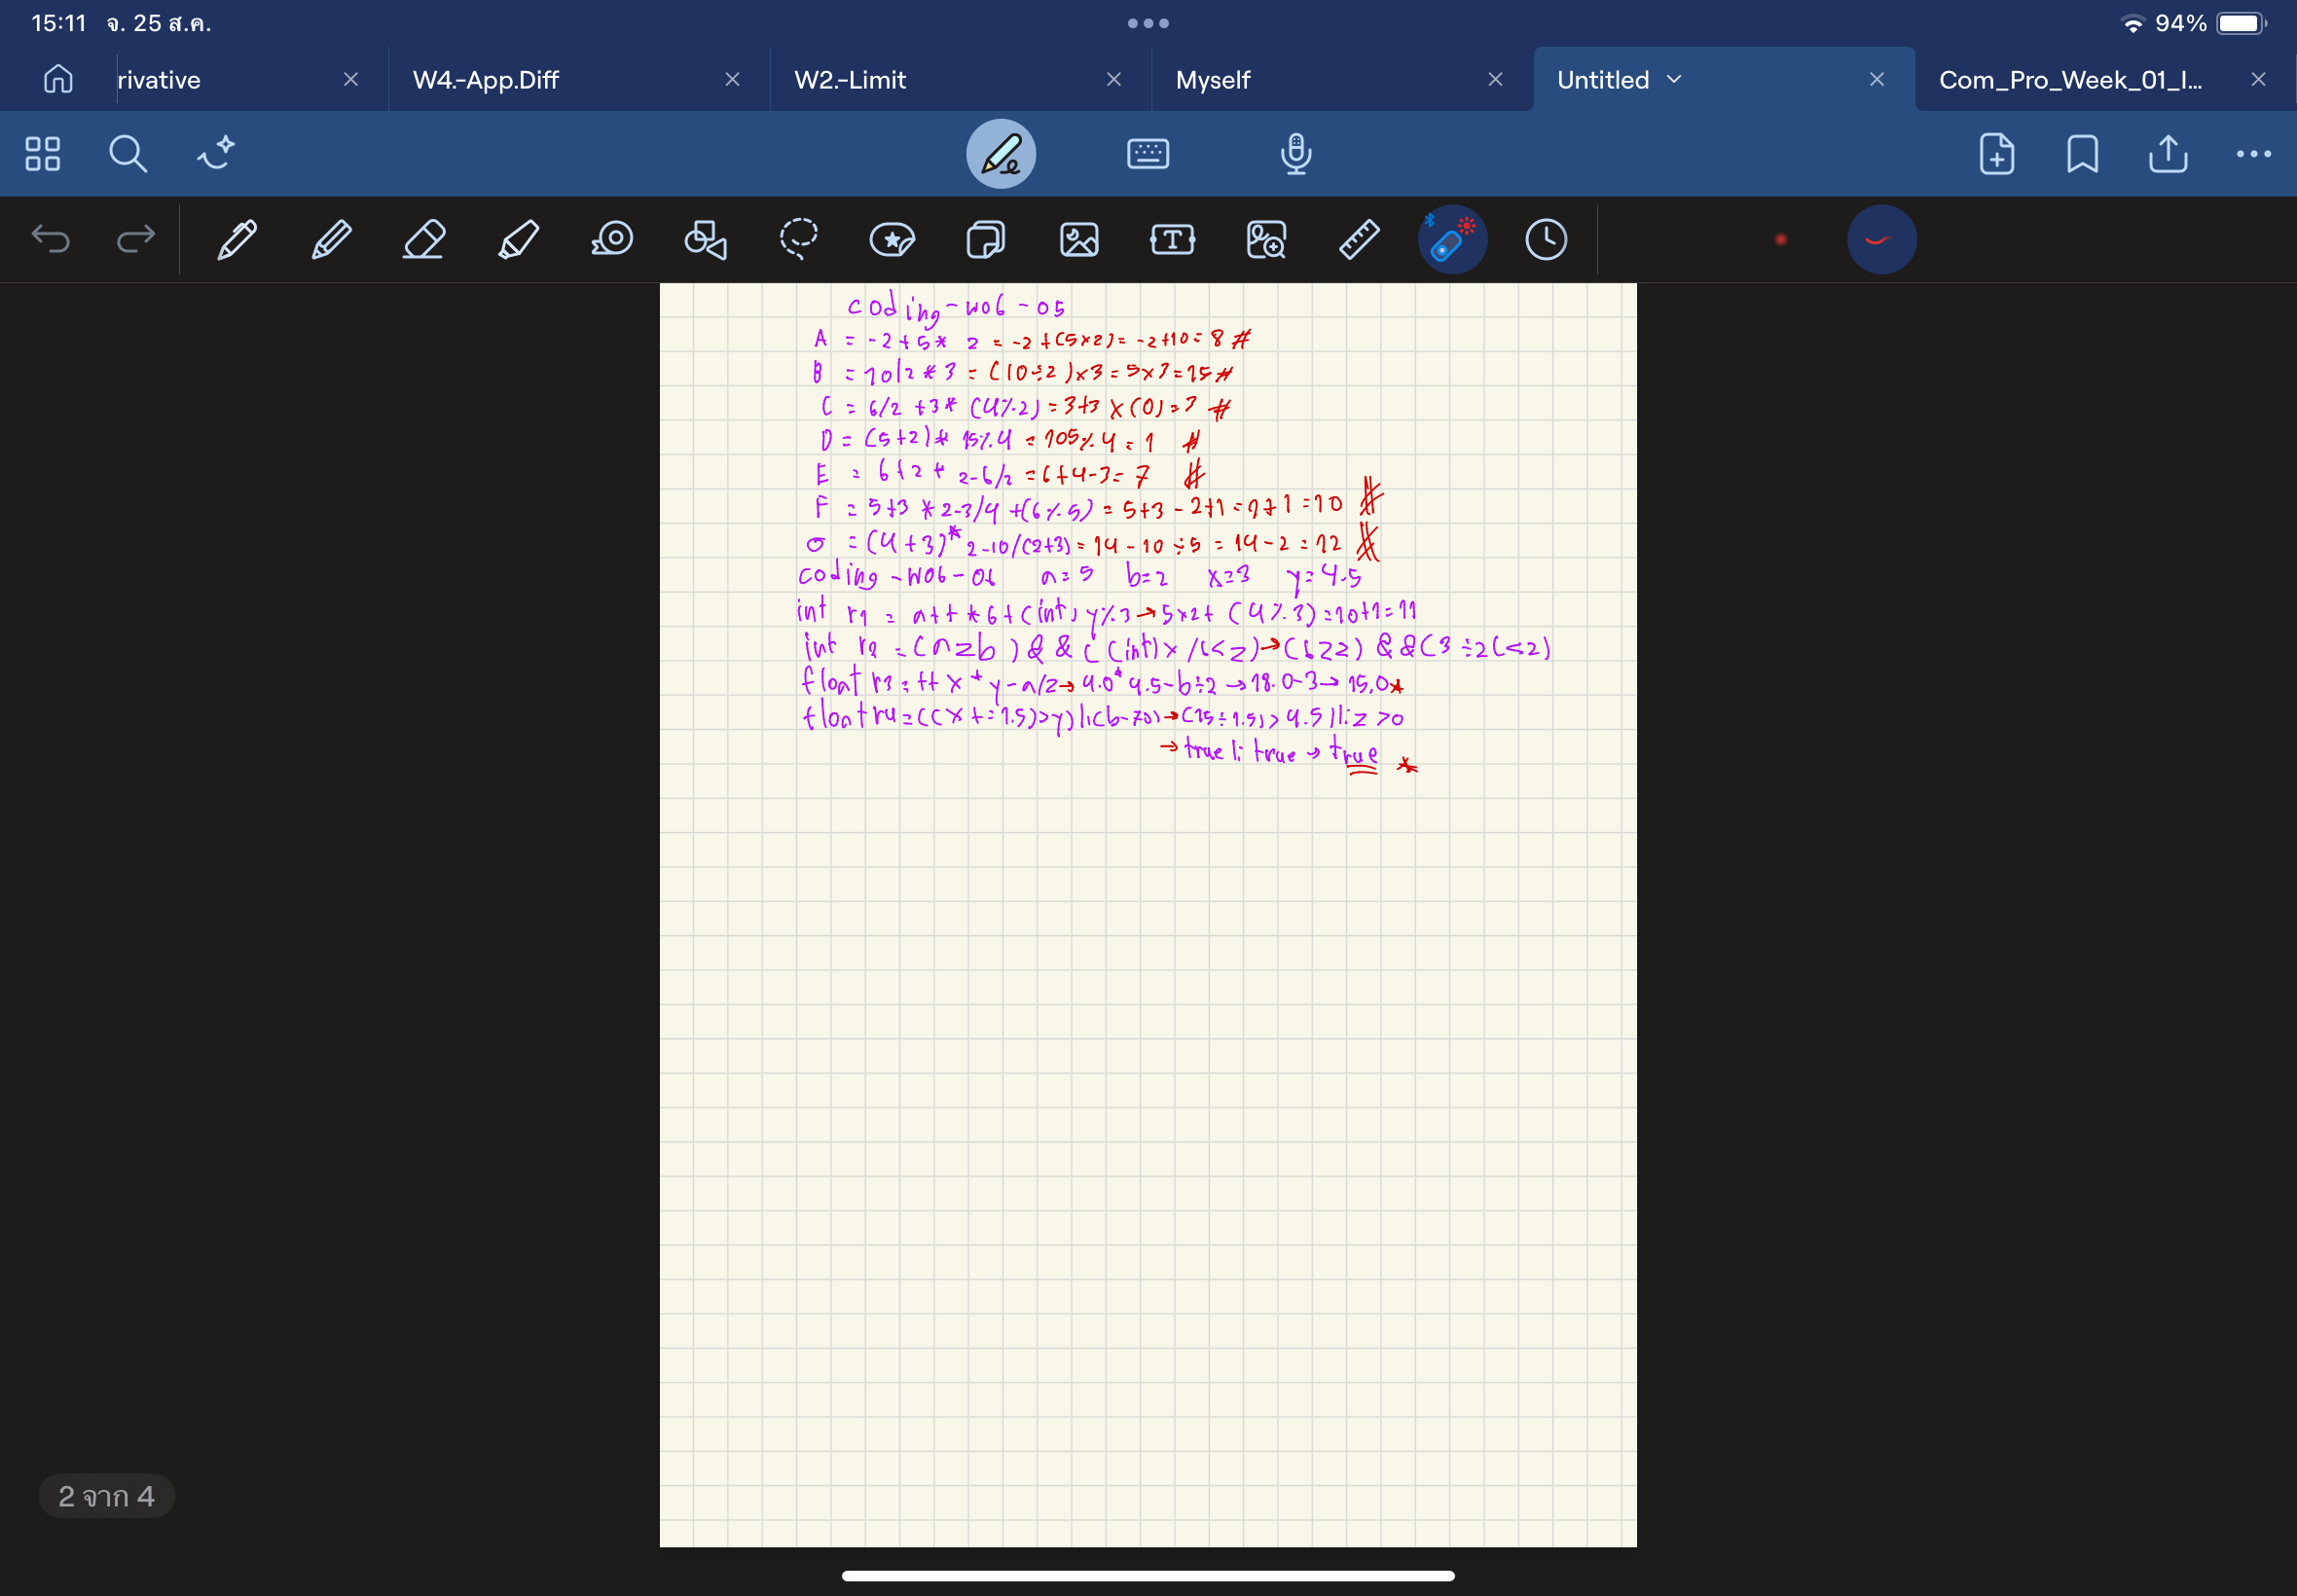 15:11 จ. 25 ส.ค. 94%
rivative W4.-App.Diff W2.-Limit Myself Untitled Com_Pro_Week_01_I...
coding-W06-05
A = -2+5* 2 = -2+(5×2)= -2+10=8 #
B = 10/2*3 = (10÷2)×3=5×3=15#
C = 6/2 +3* (4%2) =3+3 ×(0)=3 #
D = (5+2)* 15%4 = 105%4=1 #
E = 6+2* 2-6/2 =6+4-3= 7 #
F = 5+3 *2-3/4 +(6%5) = 5+3-2+1=9+1=10 #
= (4+3)* 2-10/(2+3)=14-10÷5 = 14-2=12 #
coding-W06-06 a=5 b=2 x=3 y=4.5
int r1 = a++*6+(int)y%3→5×2+ (4%3)=10+1=11
int r2 = (a≥b) && ((int)x/6<z)→(6≥2) &&(3÷2(<2)
float r3=++x*y-a/2→4.0*4.5-6÷2→18.0-3→15.0*
float r4=((x+=1.5)>y)||(b-70)→(15÷1.5)>4.5||z>0
→true||true→true *
2 จาก 4